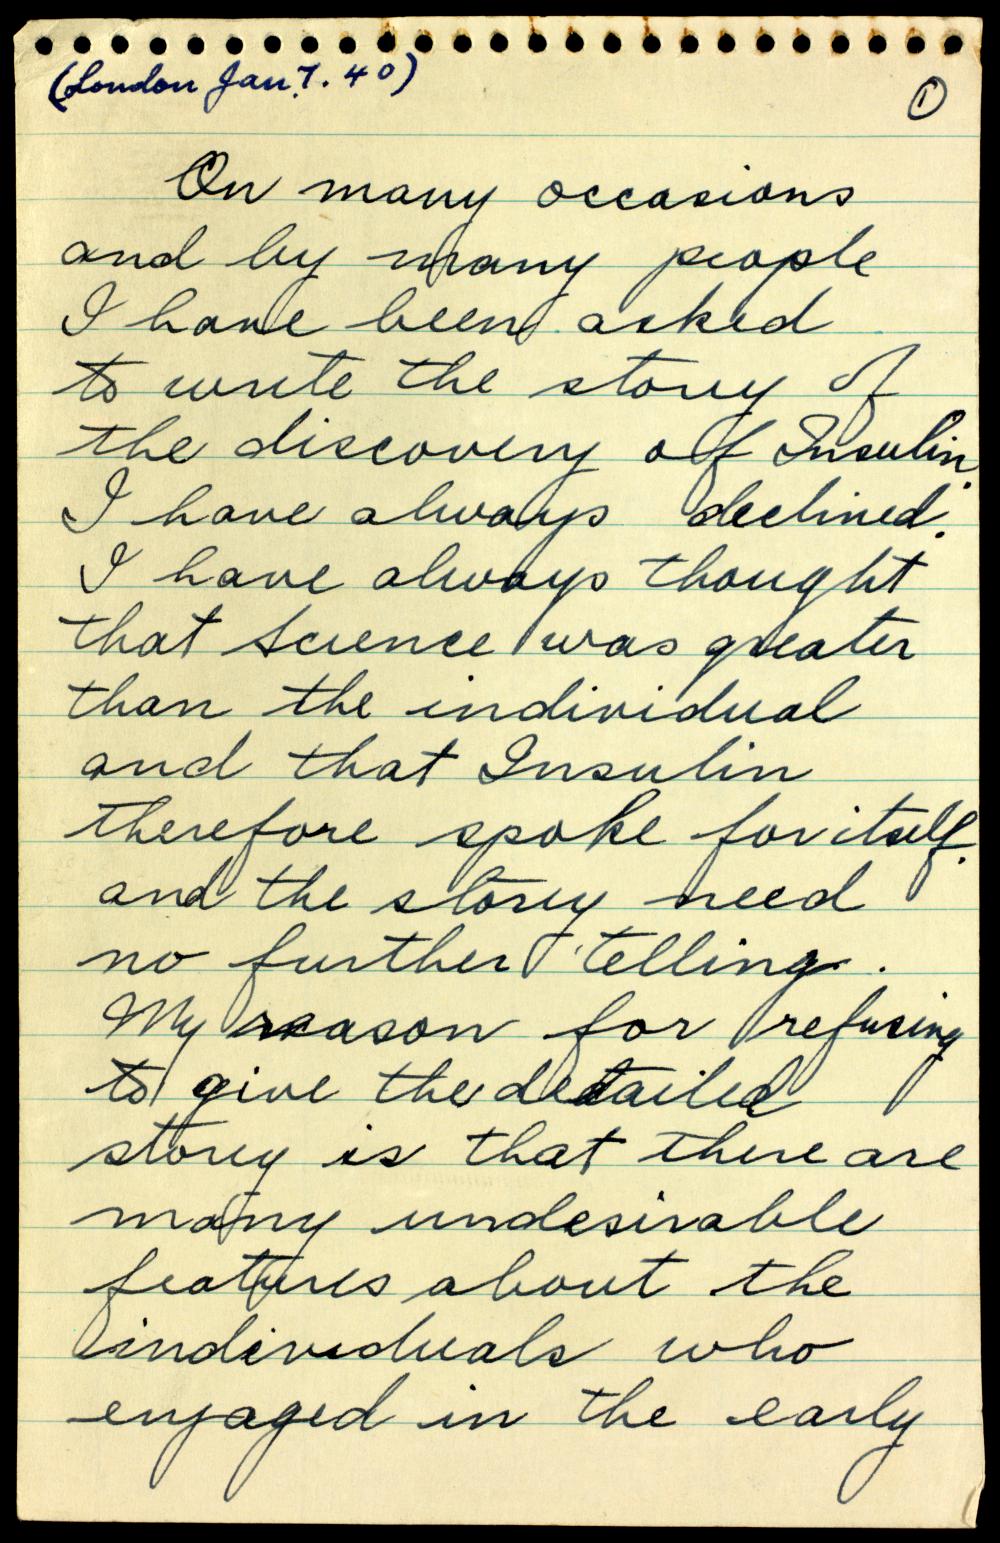 (London Jan. 7. 40)
1
On many occasions
and by many people
I have been asked
to write the story of
the discovery of Insulin.
I have always declined.
I have always thought
that Science was greater
than the individual
and that Insulin
therefore spoke for itself.
and the story need
no further telling.
My reason for refusing
to give the detailed
story is that there are
many undesirable
features about the
individuals who
engaged in the early